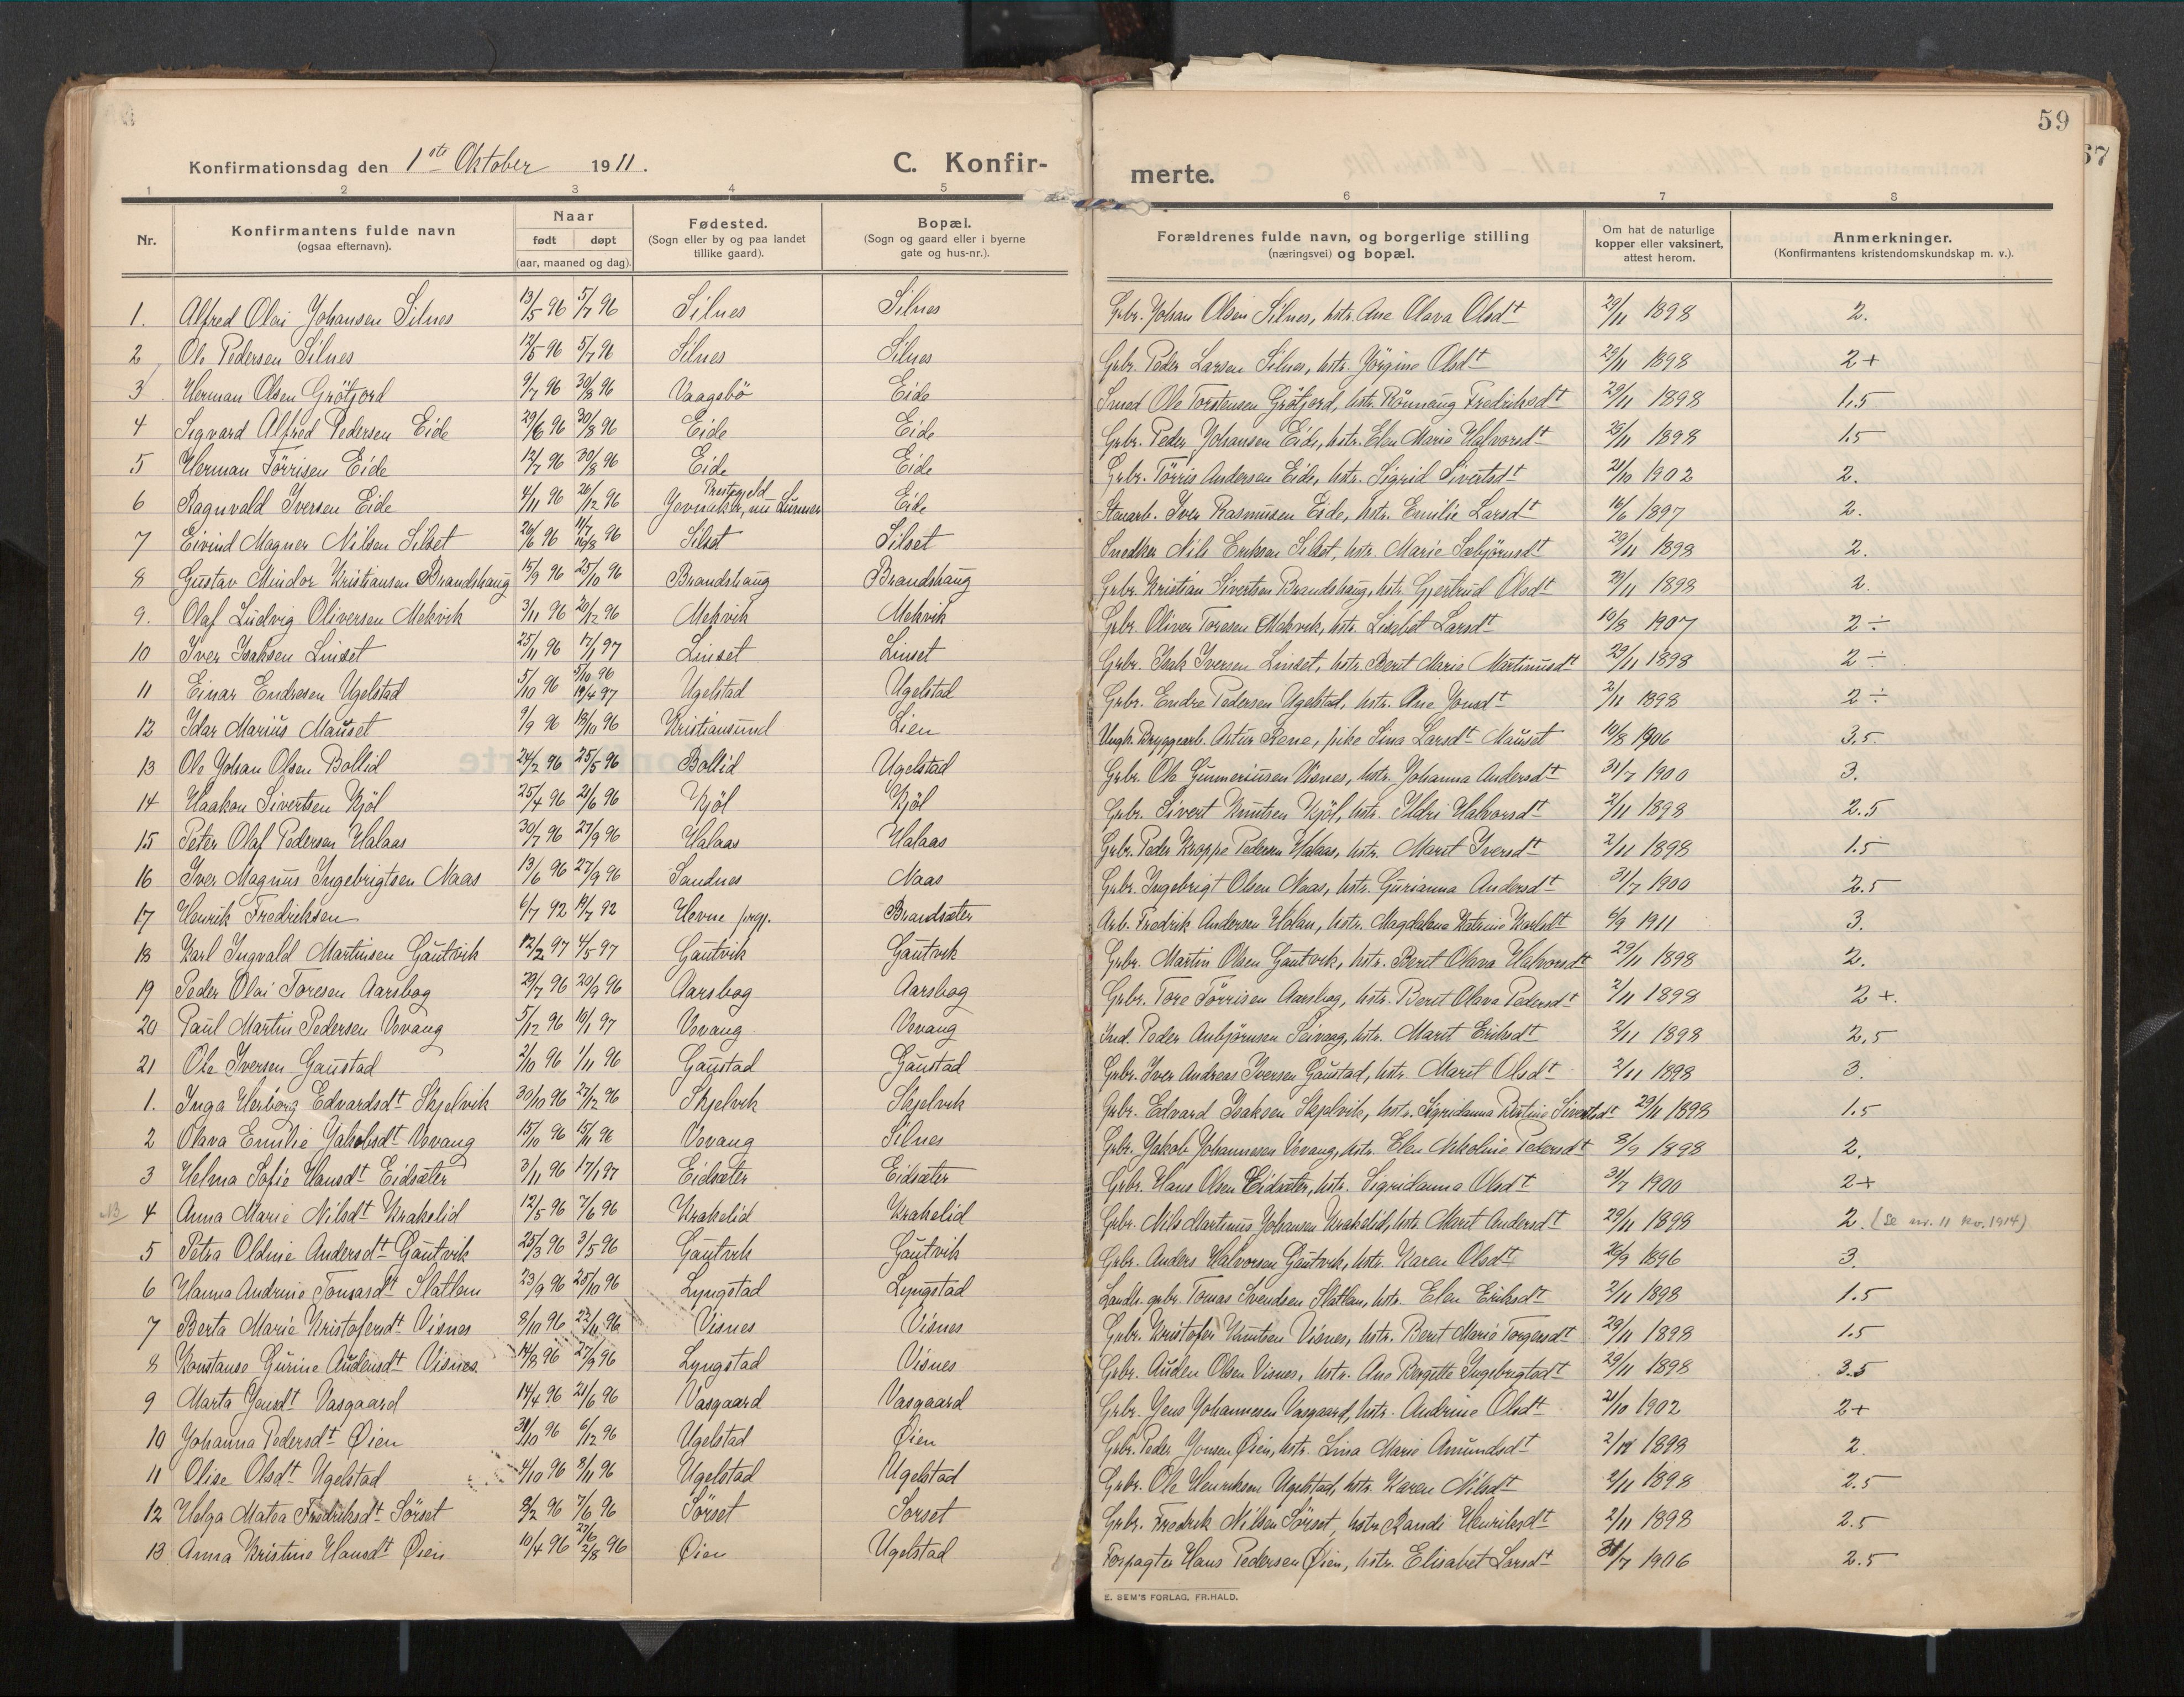 59
67
Konfirmationsdag den 1ste Oktober 1911. C. Konfir-
merte.
1 2 3 4 5 6 7 8
Nr. Konfirmantens fulde navn (ogsaa efternavn). Naar født døpt (aar, maaned og dag). Fødested. (Sogn eller by og paa landet tillike gaard). Bopæl. (Sogn og gaard eller i byerne gate og hus-nr.). Forældrenes fulde navn, og borgerlige stilling (næringsvei) og bopæl. Om hat de naturlige kopper eller vaksinert, attest herom. Anmerkninger. (Konfirmantens kristendomskundskap m. v.).
1. Alfred Olai Johansen Silnes 13/5 96 5/7 96 Silnes Silnes Grbr. Johan Olsen Silnes, hstr. Ane Olava Olsdt 29/11 1898 2.
2 Ole Pedersen Silnes 12/5 96 5/7 96 Silnes Silnes Grbr. Peder Larsen Silnes, hstr. Jörgine Olsdt 29/11 1898 2+
3 Herman Olsen Gröfjord 9/7 96 30/8 96 Vaagsbö Eide Smed Ole Torstensen Gröfjord, hstr. Rönnaug Fredriksdt 29/11 1898 1.5
4 Sigvard Alfred Pedersen Eide 29/6 96 30/8 96 Eide Eide Grbr. Peder Johansen Eide, hstr. Elen Marie Halvorsdt 1898 1.5
5 Herman Törrisen Eide 12/7 96 30/8 96 Eide Eide Grbr. Törris Andersen Eide, hstr. Sigrid Sivertsdt 21/10 1902 2.
6 Ragnvald Iversen Eide 4/11 96 26/12 96 Prestegjeld Jevnaker, nu Lunner Eide Stenarb. Iver Rasmussen Eide, hstr. Emilie Larsdt 16/6 1897 2.
7 Eivind Magner Nilsen Silset 96 96 Silset Silset Snedker Nils Eriksen Silset, hstr. Marie Sæbjörnsdt 29/11 1898 2.
8 Gustav Mindor Kristiansen Brandshaug 15/9 96 25/10 96 Brandshaug Brandshaug Grbr. Kristian Sivertsen Brandshaug, hstr. Gjertrud Olsdt 29/11 1898 2.
9. Olaf Ludvig Oliversen Mekvik 3/11 96 20/12 96 Mekvik Mekvik Grbr. Oliver Toresen Mekvik, hstr. Lisabet Larsdt 10/8 1907 2÷
10 Iver Isaksen Linset 25/11 96 17/1 97 Linset Linset Grbr. Isak Iversen Linset, hstr. Berit Marie Martinusdt 29/11 1898 2÷
11 Einar Endresen Ugelstad 5/10 96 5/10 96 19/4 97 Ugelstad Ugelstad Grbr. Endre Pedersen Ugelstad, hstr. Ane Jonsdt 2/11 1898 2÷
12 Idar Marius Mauset 9/9 96 18/10 96 Kristiansund Lien Ungk. Bryggearb. Artur Rene, pike Sina Larsdt Mauset 10/8 1906 3.5.
13 Ole Johan Olsen Bollid 24/2 96 25/5 96 Bollid Ugelstad Grbr. Ole Gunneriusen Visnes, hstr. Johanna Andersdt 31/7 1900 3.
14 Haakon Sivertsen Kjöl 25/4 96 21/6 96 Kjöl Kjöl Grbr. Sivert Knutsen Kjöl, hstr. Ildri Halvorsdt 2/11 1898 2.5
15 Peter Olaf Pedersen Halaas 30/7 96 27/9 96 Halaas Halaas Grbr. Peder Kroppe Pedersen Halaas, hstr. Marit Iversdt 2/11 1898 1.5
16 Iver Magnus Ingebrigtsen Naas 13/6 96 27/9 96 Sandnes Naas Grbr. Ingebrigt Olsen Naas, hstr. Gurianna Andersdt 31/7 1900 2.5
17 Henrik Fredriksen 6/7 92 19/7 92 Hevne prgj. Brandsæter Arb. Fredrik Andersen Holan, hstr. Magdalena Katrine Karlsdt 6/9 1911 3.
18 Karl Ingvald Martinsen Gautvik 12/2 97 4/5 97 Gautvik Gautvik Grbr. Martin Olsen Gautvik, hstr. Berit Olava Halvorsdt 29/11 1898 2.
19 Peder Olai Toresen Aarsbog 29/7 96 20/9 96 Aarsbog Aarsbog Grbr. Tore Törrisen Aarsbog, hstr. Berit Olava Pedersdt 2/11 1898 2+.
20 Paul Martin Pedersen Vevang 5/12 96 10/1 97 Vevang Vevang Ind. Peder Anbjörnsen Seivaag, hstr. Marit Eriksdt 2/11 1898 2,5
21 Ole Iversen Gaustad 2/10 96 1/11 96 Gaustad Gaustad Grbr. Iver Andreas Iversen Gaustad, hstr. Marit Olsdt 2/11 1898 3.
1. Inga Herborg Edvardsdt Skjelvik 30/10 96 27/12 96 Skjelvik Skjelvik Grbr. Edvard Isaksen Skjelvik, hstr. Sigridanna Kristine Sivertsdt 29/11 1898 1.5
2 Olava Emilie Jakobsdt Vevang 15/10 96 15/11 96 Vevang Silnes Grbr. Jakob Johannesen Vevang, hstr. Elen Nikoline Pedersdt 8/9 1898 2.
3 Helma Sofie Hansdt Eidsæter 3/11 96 17/1 97 Eidsæter Eidsæter Grbr. Hans Olsen Eidsæter, hstr. Sigridanna Olsdt 31/7 1900 2+
4 Anna Marie Nilsdt Krakelid 12/5 96 7/6 96 Krakelid Krakelid Grbr. Nils Martinus Johansen Krakelid, hstr. Marit Andersdt 29/11 1898 2. (Se nr. 11 kv. 1914)
5 Petra Oldine Andersdt Gautvik 25/3 96 3/5 96 Gautvik Gautvik Grbr. Anders Halvorsen Gautvik, hstr. Karen Olsdt 26/9 1896 3.
6 Hanna Andrine Tomasdt Slatlem 23/9 96 25/10 96 Lyngstad Lyngstad Landh. grbr. Tomas Svendsen Slatlem, hstr. Elen Eriksdt 2/11 1898 1.5
7 Berta Marie Kristofersdt Visnes 8/10 96 22/11 96 Visnes Visnes Grbr. Kristofer Knutsen Visnes, hstr. Berit Marie Torgersdt 29/11 1898 1.5
8 Konstanse Gurine Audensdt Visnes 14/8 96 27/9 96 Lyngstad Visnes Grbr. Auden Olsen Visnes, hstr. Ane Bergitte Ingebrigtsdt 29/11 1898 3.5
9 Marta Jensdt Vasgaard 14/4 96 21/6 96 Vasgaard Vasgaard Grbr. Jens Johannesen Vasgaard, hstr. Andrine Olsdt 21/10 1902 2+
10 Johanna Pedersdt Øien 31/10 96 6/12 96 Ugelstad Øien Grbr. Peder Jonsen Øien, hstr. Lina Marie Amundsdt 2/11 1898 2.
11 Olise Olsdt Ugelstad 4/10 96 8/11 96 Ugelstad Ugelstad Grbr. Ole Henriksen Ugelstad, hstr. Karen Nilsdt 2/11 1898 2.5
12 Helga Matea Fredriksdt Sörset 8/2 96 7/6 96 Sörset Sorset Grbr. Fredrik Nilsen Sörset, hstr. Randi Henriksdt 2/11 1898 2.5
13 Anna Kristine Hansdt Øien 10/4 96 27/6 2/8 96 Øien Ugelstad Forpagter Hans Pedersen Øien, hstr. Elisabet Larsdt 31/7 1906 2.5
E. SEM'S FORLAG, FR.HALD.